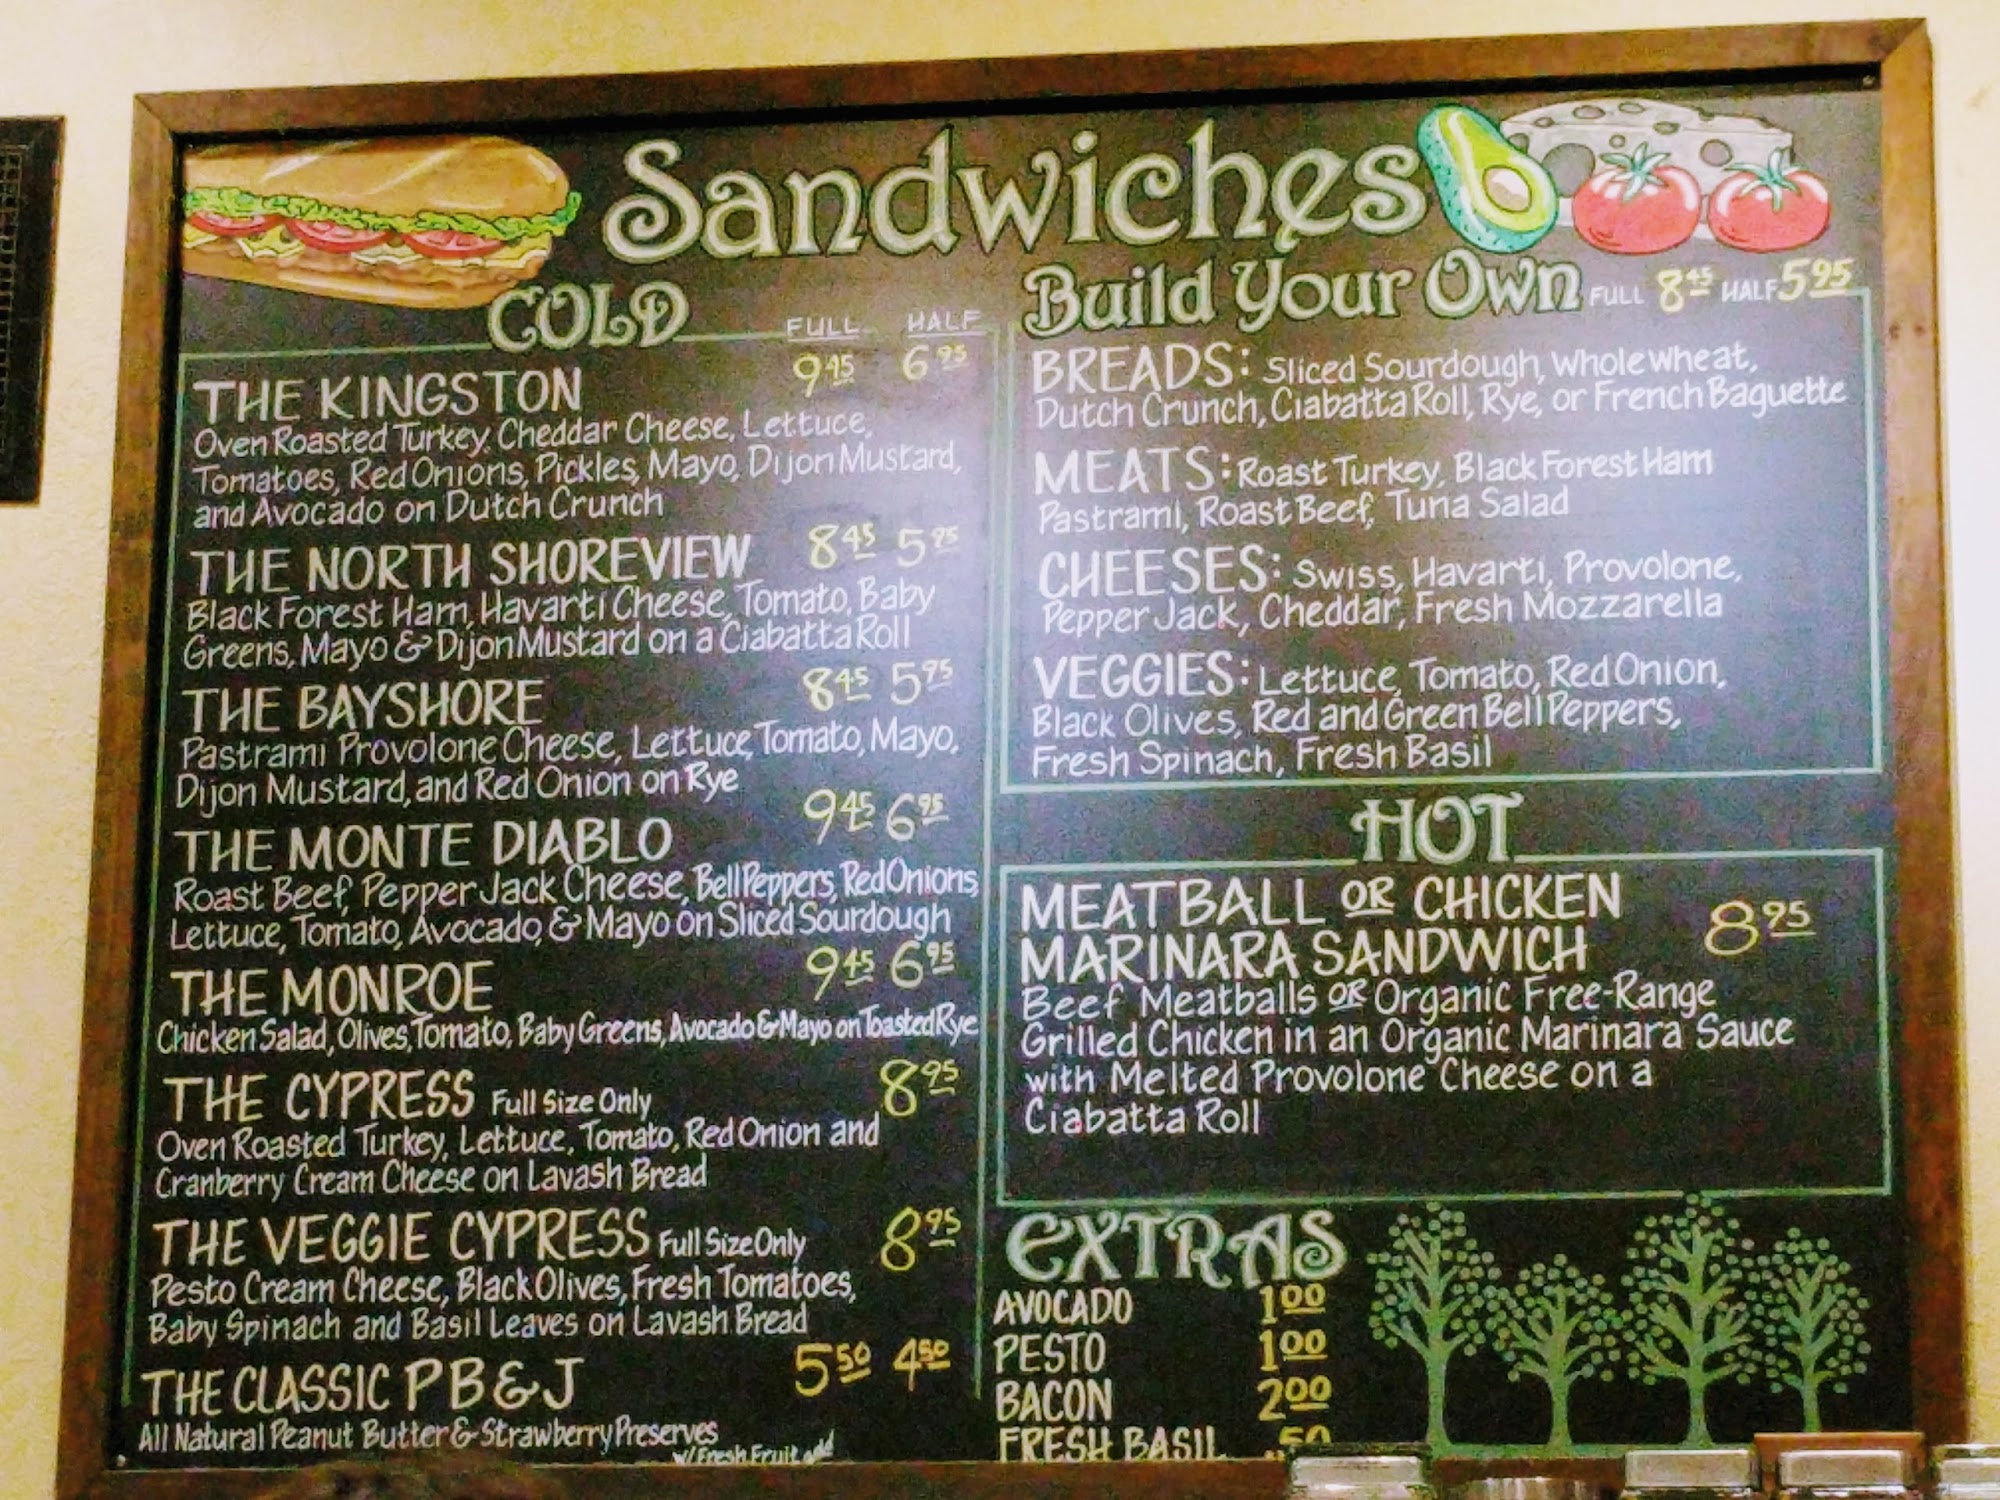 Sandwiches
COLD
FULL HALF
THE KINGSTON 9.45 6.95
Oven Roasted Turkey, Cheddar Cheese, Lettuce,
Tomatoes, Red Onions, Pickles, Mayo, Dijon Mustard,
and Avocado on Dutch Crunch
THE NORTH SHOREVIEW 8.45 5.95
Black Forest Ham, Havarti Cheese, Tomato, Baby
Greens, Mayo & Dijon Mustard on a Ciabatta Roll
THE BAYSHORE 8.45 5.95
Pastrami Provolone Cheese, Lettuce, Tomato, Mayo,
Dijon Mustard, and Red Onion on Rye
THE MONTE DIABLO 9.45 6.95
Roast Beef, Pepper Jack Cheese, Bell Peppers, Red Onions,
Lettuce, Tomato, Avocado, & Mayo on Sliced Sourdough
THE MONROE 9.45 6.95
Chicken Salad, Olives, Tomato, Baby Greens, Avocado & Mayo on Toasted Rye
THE CYPRESS Full Size Only 8.95
Oven Roasted Turkey, Lettuce, Tomato, Red Onion and
Cranberry Cream Cheese on Lavash Bread
THE VEGGIE CYPRESS Full Size Only 8.95
Pesto Cream Cheese, Black Olives, Fresh Tomatoes,
Baby Spinach and Basil Leaves on Lavash Bread
THE CLASSIC PB&J 5.50 4.50
All Natural Peanut Butter & Strawberry Preserves
w/ Fresh Fruit add
Build Your Own FULL 8.45 HALF 5.95
BREADS: Sliced Sourdough, Whole Wheat,
Dutch Crunch, Ciabatta Roll, Rye, or French Baguette
MEATS: Roast Turkey, Black Forest Ham
Pastrami, Roast Beef, Tuna Salad
CHEESES: Swiss, Havarti, Provolone,
Pepper Jack, Cheddar, Fresh Mozzarella
VEGGIES: Lettuce, Tomato, Red Onion,
Black Olives, Red and Green Bell Peppers,
Fresh Spinach, Fresh Basil
HOT
MEATBALL OR CHICKEN
MARINARA SANDWICH 8.95
Beef Meatballs OR Organic Free-Range
Grilled Chicken in an Organic Marinara Sauce
with Melted Provolone Cheese on a
Ciabatta Roll
EXTRAS
AVOCADO 1.00
PESTO 1.00
BACON 2.00
FRESH BASIL .50